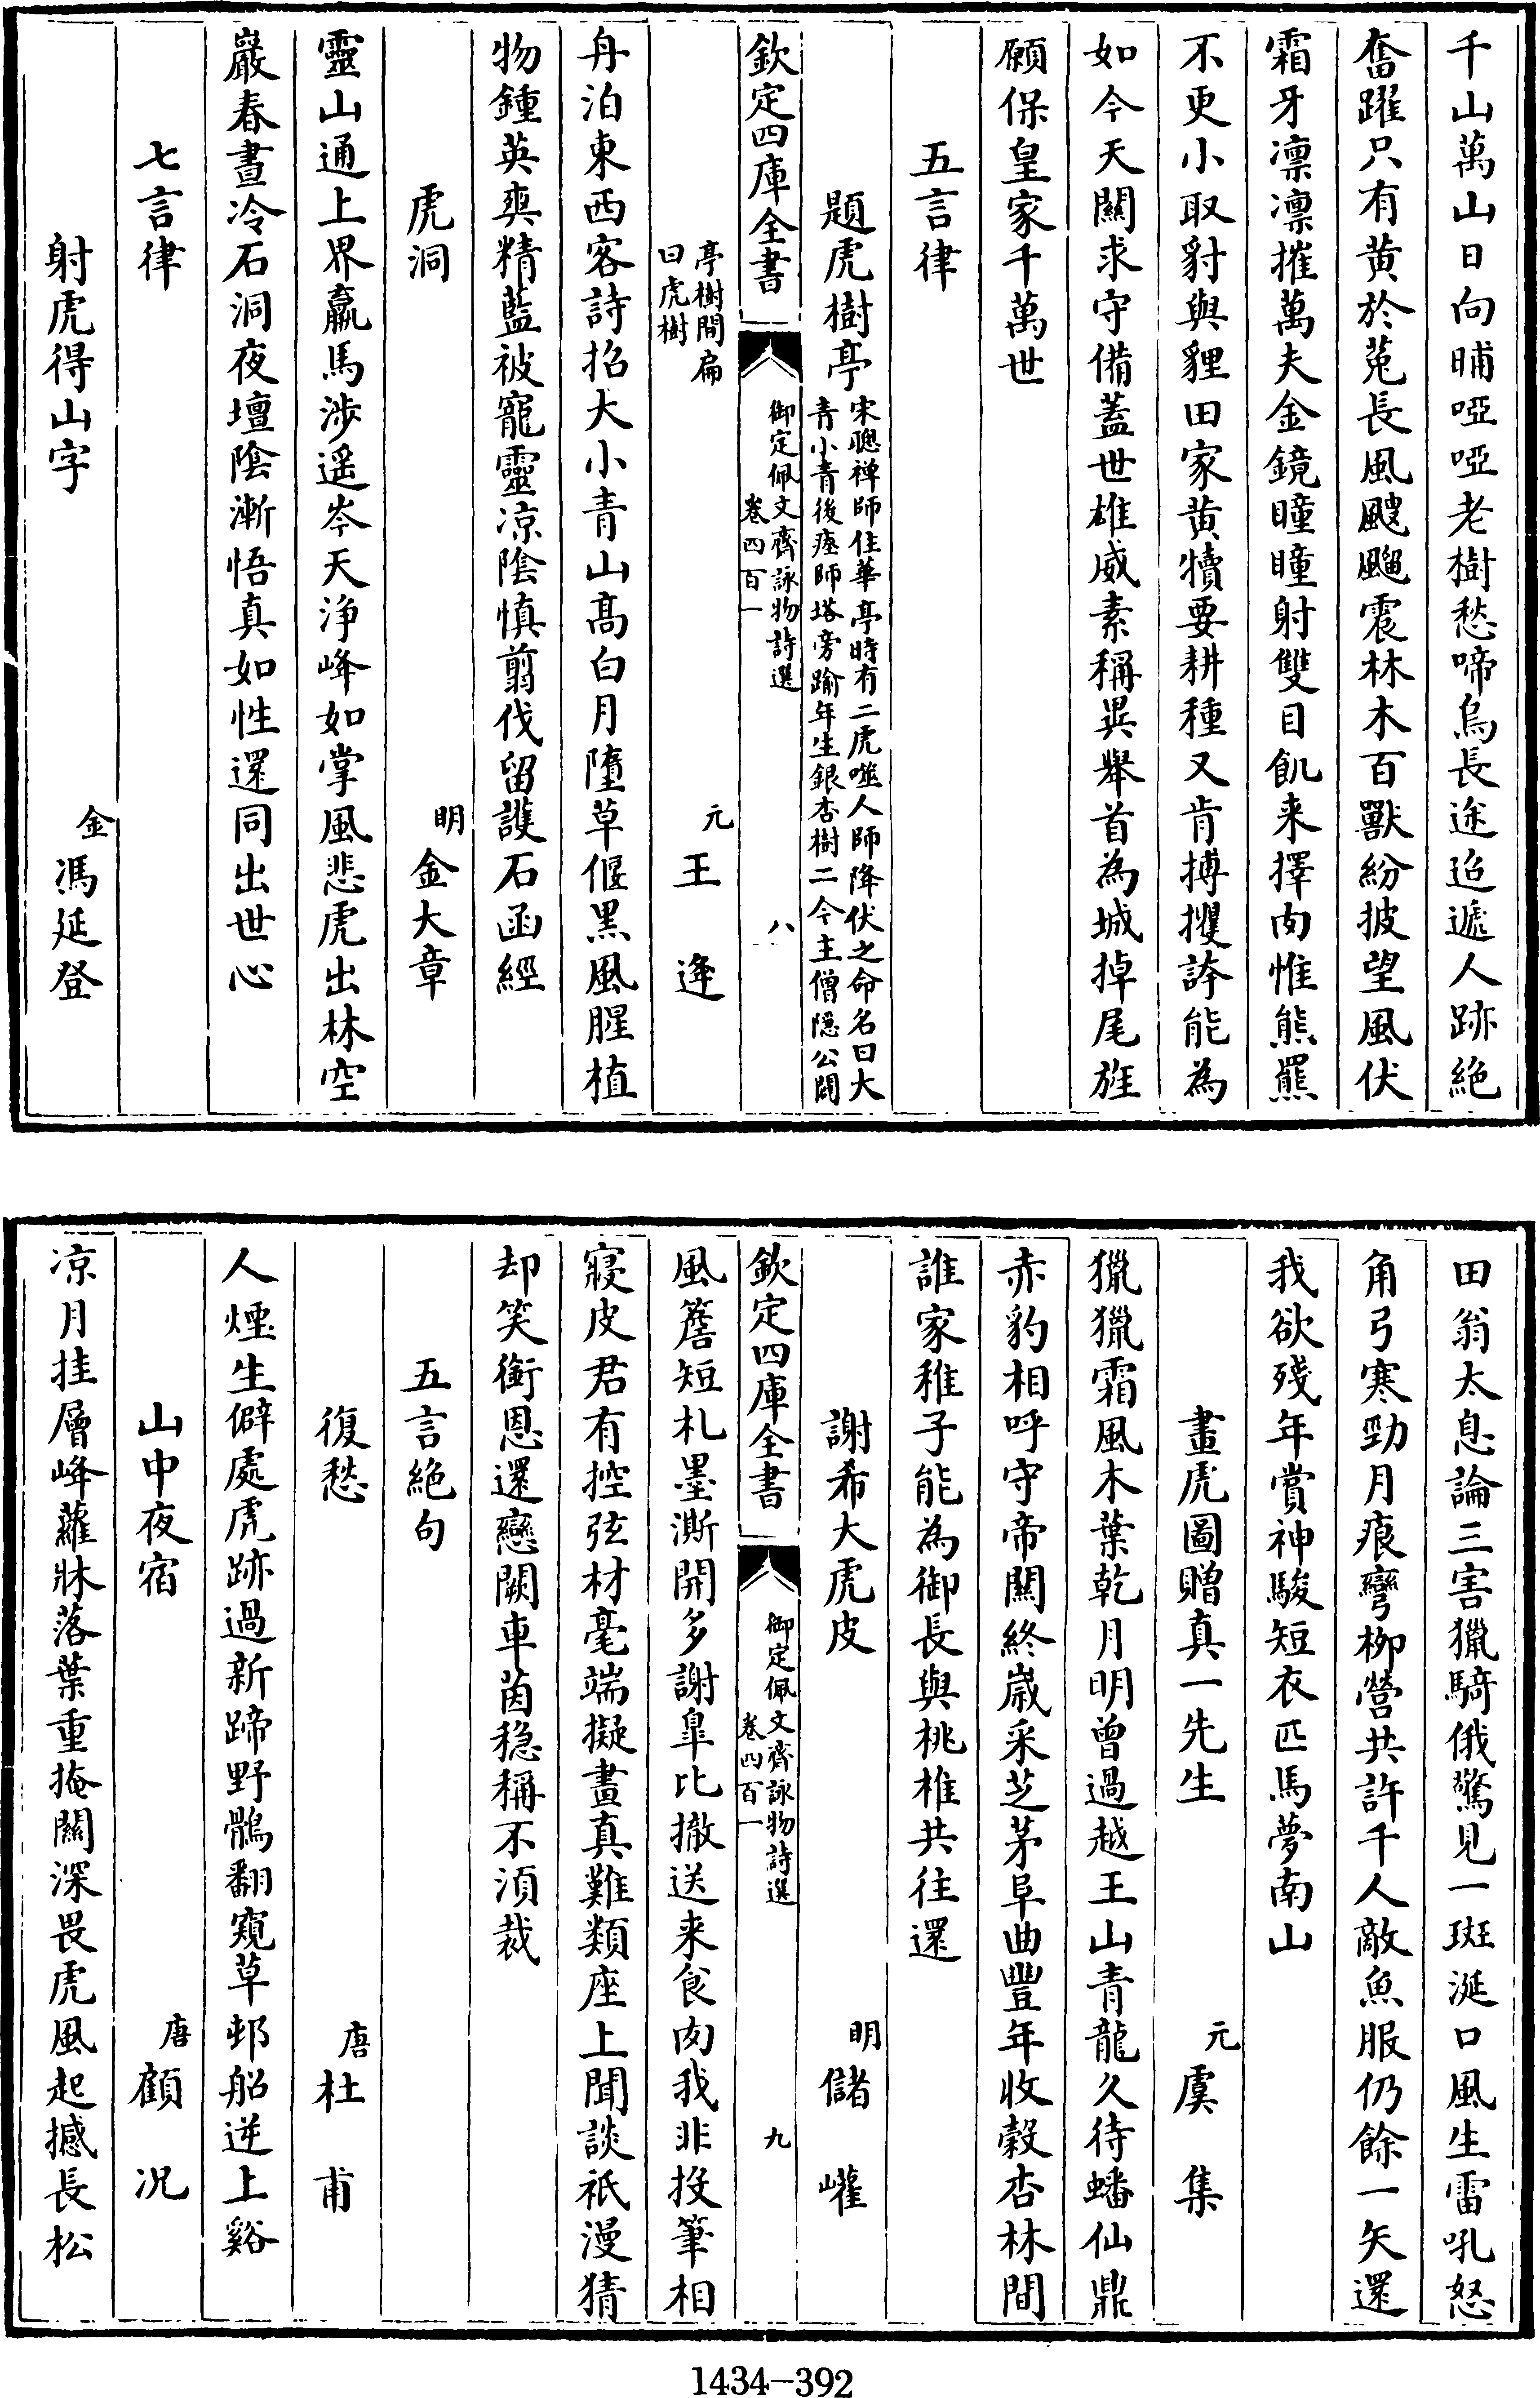 千山萬山日向晡啞啞老樹愁啼烏長途迢遞人跡絶
奮躍只有黄於菟長風颼飀震林木百獸紛披望風伏
霜牙凛凛摧萬夫金鏡瞳瞳射雙目飢来擇肉惟熊羆
不更小取豺與貍田家黄犢要耕種又肯搏攫誇能為
如今天闗求守備蓋世雄威素稱異舉首為城掉尾旌
願保皇家千萬世
五言律
題虎樹亭宋聰禅師住華亭時有二虎噬人師降伏之命名曰大
青小青後瘞師塔旁踰年生銀杏樹二今主僧隠公闢
欽定四庫全書
御定佩文齋詠物詩選
卷四百一
八
亭樹間扁
曰虎樹
元王逢
舟泊東西客詩招大小青山髙白月墮草偃黒風腥植
物鍾英爽精藍被寵靈凉陰慎剪伐留護石函經
虎洞
明金大章
靈山通上界羸馬渉遥岑天浄峰如掌風悲虎出林空
巖春晝冷石洞夜壇陰漸悟真如性還同出世心
七言律
射虎得山字
金馮延登
田翁太息論三害獵騎俄驚見一斑涎口風生雷吼怒
角弓寒勁月痕彎柳營共許千人敵魚服仍餘一矢還
我欲殘年賞神駿短衣匹馬夢南山
畫虎圖贈真一先生
元虞集
獵獵霜風木葉乾月明曽過越王山青龍久待蟠仙鼎
赤豹相呼守帝闗終嵗采芝茅阜曲豐年收榖杏林間
誰家稚子能為御長與桃椎共往還
謝希大虎皮
明儲巏
欽定四庫全書
御定佩文齋詠物詩選
卷四百一
九
風簷短札墨澌開多謝臯比撤送来食肉我非投筆相
寢皮君有控弦材毫端擬畫真難類座上聞談祇漫猜
却笑銜恩還戀闕車茵穏稱不湏裁
五言絶句
復愁
唐杜甫
人煙生僻處虎跡過新蹄野鶻翻窺草邨船逆上谿
山中夜宿
唐顧况
凉月挂層峰蘿牀落葉重掩闗深畏虎風起撼長松
1434-392